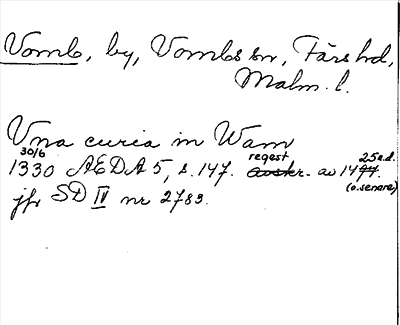 Vomb, by, Vombs sn, Färs hd,
Malm. l.
Vna curia in Wam
30/6 regest 25 a.d.
1330 AEDA 5, s. 147. avskr. av 1494.
(o. senare)
jfr SD IV nr 2783.